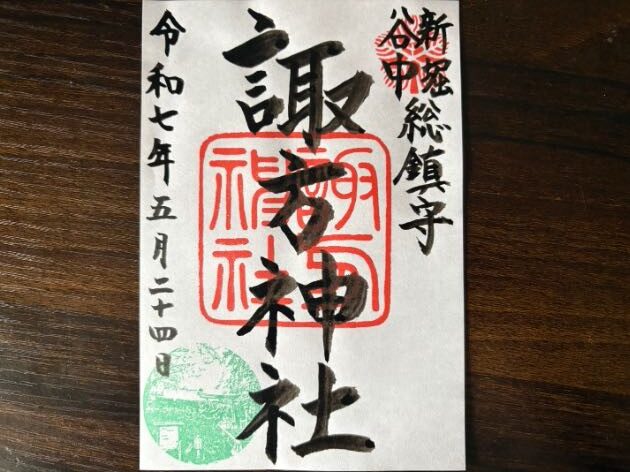 新堀
谷中
総鎮守
諏方神社
令和七年五月二十四日